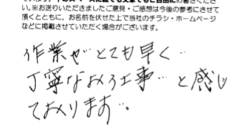 い。※お送りいただきましたご意見・ご感想は今後の参考にさせて
頂くとともに、お名前を伏せた上で当社のチラシ・ホームページ
などに掲載させていただく場合がございます。
作業がとても早く
丁寧なお工事…と感じ
ております。